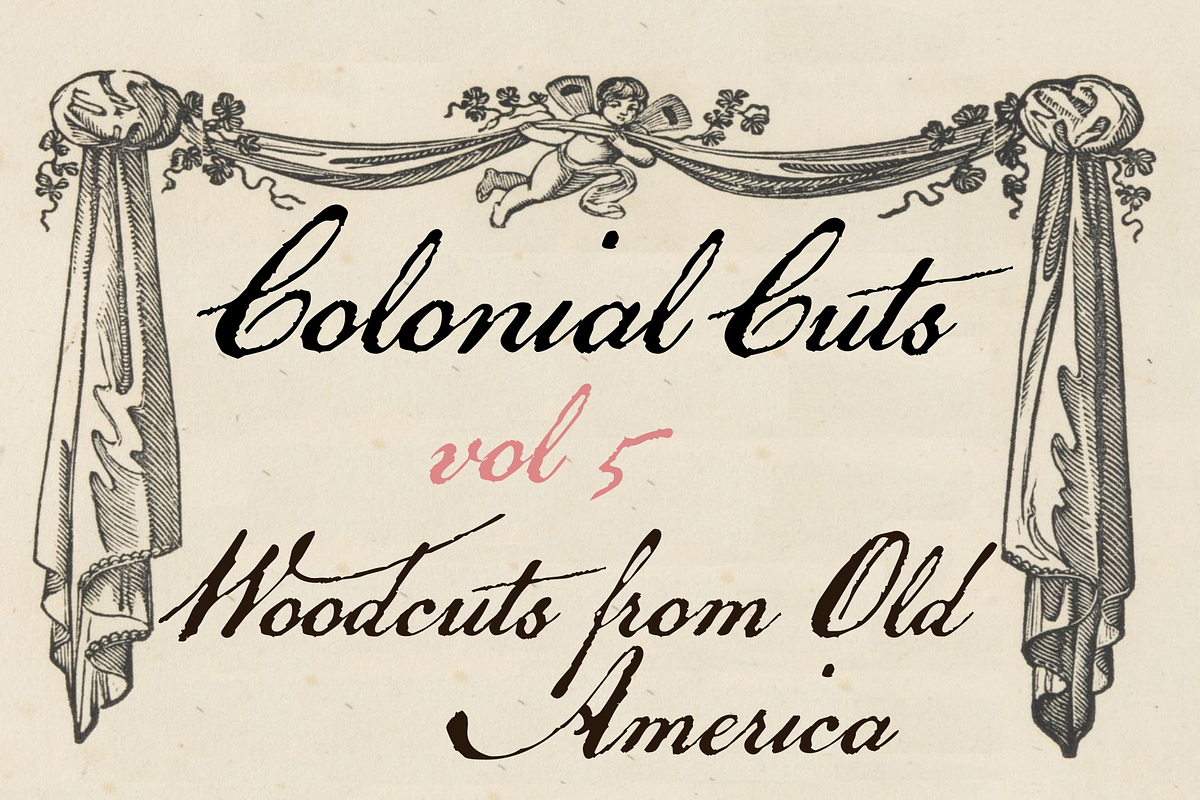 Colonial Cuts
vol 5
Woodcuts from Old
America